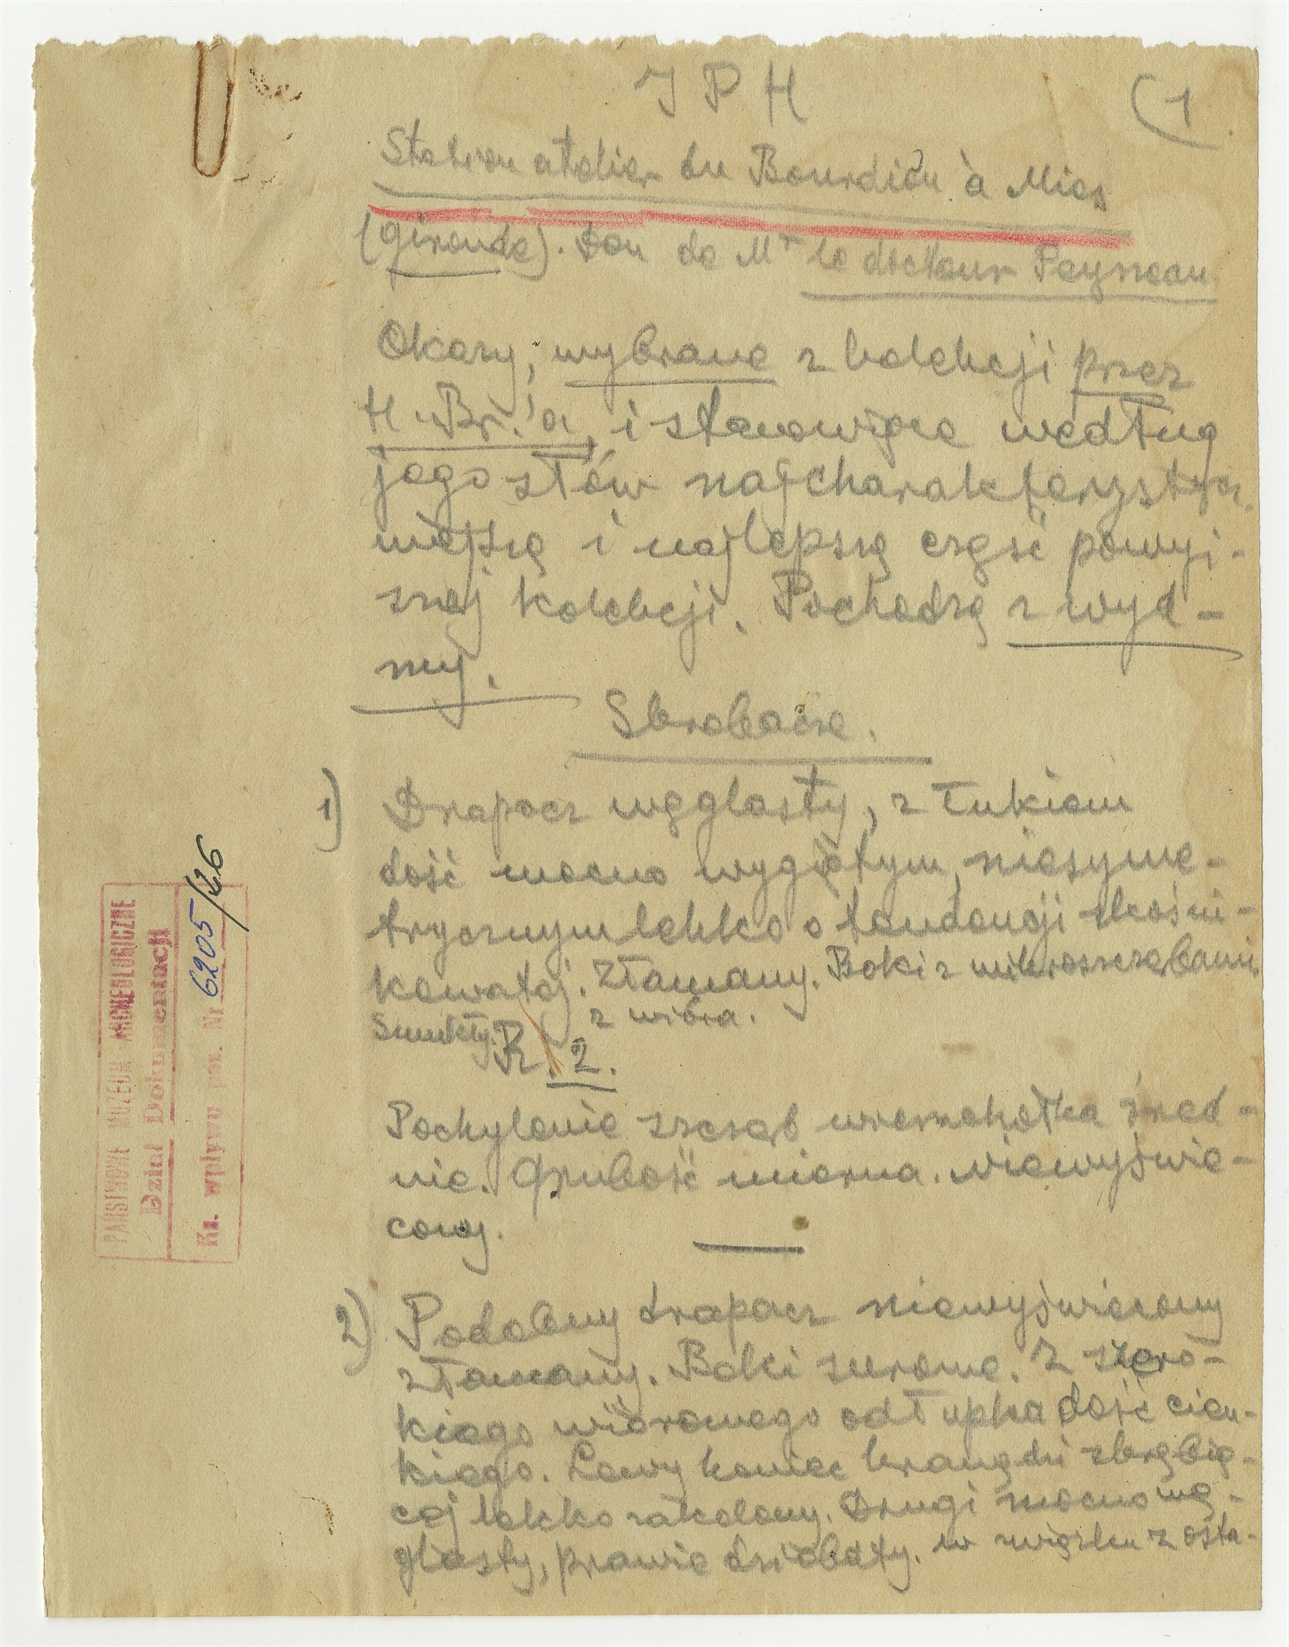 I P H
(1
Station atelier du Bourdiou à Mios
(Gironde). Don de Mr le docteur Peyneau
Okazy, wybrane z kolekcji przez
H. Br.'a, i stanowiące według
jego słów najcharakterystycz-
niejszą i najlepszą część powyż-
szej kolekcji. Pochodzą z wyd-
my.
Skrobacze.
1) Drapacz węglasty, z łukiem
dość mocno wygiętym, niesyme-
trycznym lekko o tendencji skośni-
kowatej. Złamany. Boki z mikroszczerbami.
Smukły. z wióra.
R. 2.
Pochylenie szczęb wierzchołka śred-
nie. Grubość mierna. Niewyświe-
cony.
2) Podobny drapacz niewyświecony
złamany. Boki surowe. Z szero-
kiego wiórowego odłupka dość cien-
kiego. Lewy koniec krawędzi skrobią-
cej lekko zakolony. Drugi mocno wę-
glasty, prawie dziobaty. W związku z osta-
PAŃSTWOWE MUZEUM ARCHEOLOGICZNE
Dział Dokumentacji
Ks. wpływu poz. Nr 6205/26